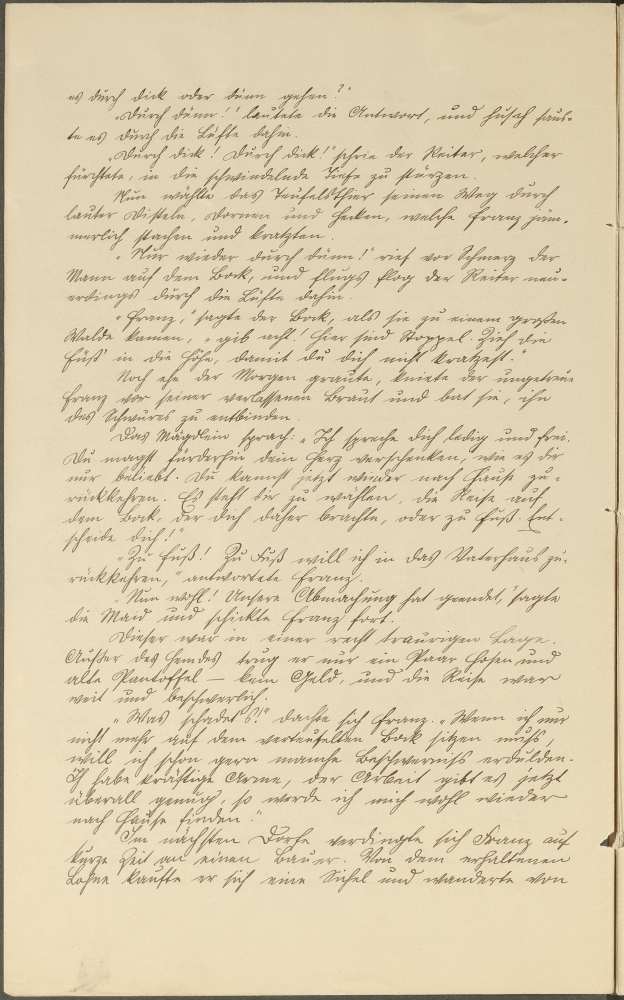 es durch dick oder dünn gehen?"
„Durch dünn!" lautete die Antwort, und husch saus-
te es durch die Lüfte dahin.
„Durch dick! Durch dick!" schrie der Reiter, welcher
fürchtete, in die schwindelnde Tiefe zu stürzen.
Nun wählte das Teufelsthier seinen Weg durch
lauter Disteln, Dornen und Hecken, welche Franz jäm-
merlich stachen und kratzten.
„Nur wieder durch dünn!" rief vor Schmerz der
Mann auf dem Bock, und flugs flog der Reiter neu-
erdings durch die Lüfte dahin.
„Franz," sagte der Bock, als sie zu einem großen
Walde kamen, „gib acht! Hier sind Stoppel. Zieh die
Füß' in die Höhe, damit du dich nicht kratzest."
Noch ehe der Morgen graute, kniete der ungetreue
Franz vor seiner verlassenen Braut und bat sie, ihn
des Schwures zu entbinden.
Das Mägdlein sprach: „Ich spreche dich ledig und frei.
Du magst fürderhin dein Herz verschenken, wie es dir
nur beliebt. Du kannst jetzt wieder nach Hause zu-
rückkehren. Es steht dir zu wählen, die Reise auf
dem Bock, der dich daher brachte, oder zu Fuß. Ent-
scheide dich!"
„Zu Fuß! Zu Fuß will ich in das Vaterhaus zu-
rückkehren," antwortete Franz.
„Nun wohl! Unsere Abmachung hat geendet," sagte
die Maid und schickte Franz fort.
Dieser war in einer recht traurigen Lage.
Außer des Hemdes trug er nur ein Paar Hosen und
alte Pantoffel – kein Geld, und die Reise war
weit und beschwerlich.
„Was schadet's!" dachte sich Franz. „Wenn ich nur
nicht mehr auf dem verteufelten Bock sitzen muß,
will ich schon gern manche Beschwernis erdulden.
Ich habe kräftige Arme, der Arbeit gibt es jetzt
überall genug, so werde ich mich wohl wieder
nach Hause finden."
Im nächsten Dorfe verdingte sich Franz auf
kurze Zeit an einen Bauer. Von dem erhaltenen
Lohne kaufte er sich eine Sichel und wanderte von